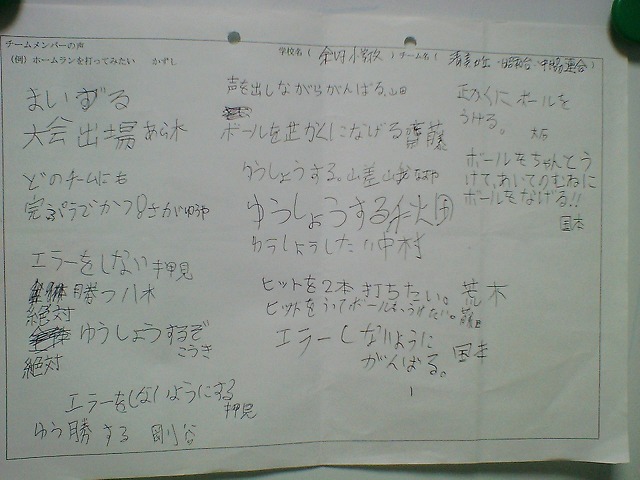 チームメンバーの声
(例) ホームランを打ってみたい　かずし
学校名( 小学校 ) チーム名( 連合 )
まいずる
大会出場 あら木
どのチームにも
完ぷうでかつ
エラーをしない 押見
勝つ 八木
絶対
ゆうしょうするぞ
こうき
絶対
エラーをしないようにする
押見
ゆう勝する 剛谷
声を出しながらがんばる。山田
ボールを正かくになげる 齋藤
ゆうしょうする。
ゆうしょうする 秋田
ゆうしょうしたい 中村
ヒットを2本打ちたい。荒木
ヒットをうってボールもうけたい。
エラーしないように
がんばる。 国本
正かくにボールを
うける。
ボールをちゃんとう
けて、あいてのむねに
ボールをなげる!!
国本